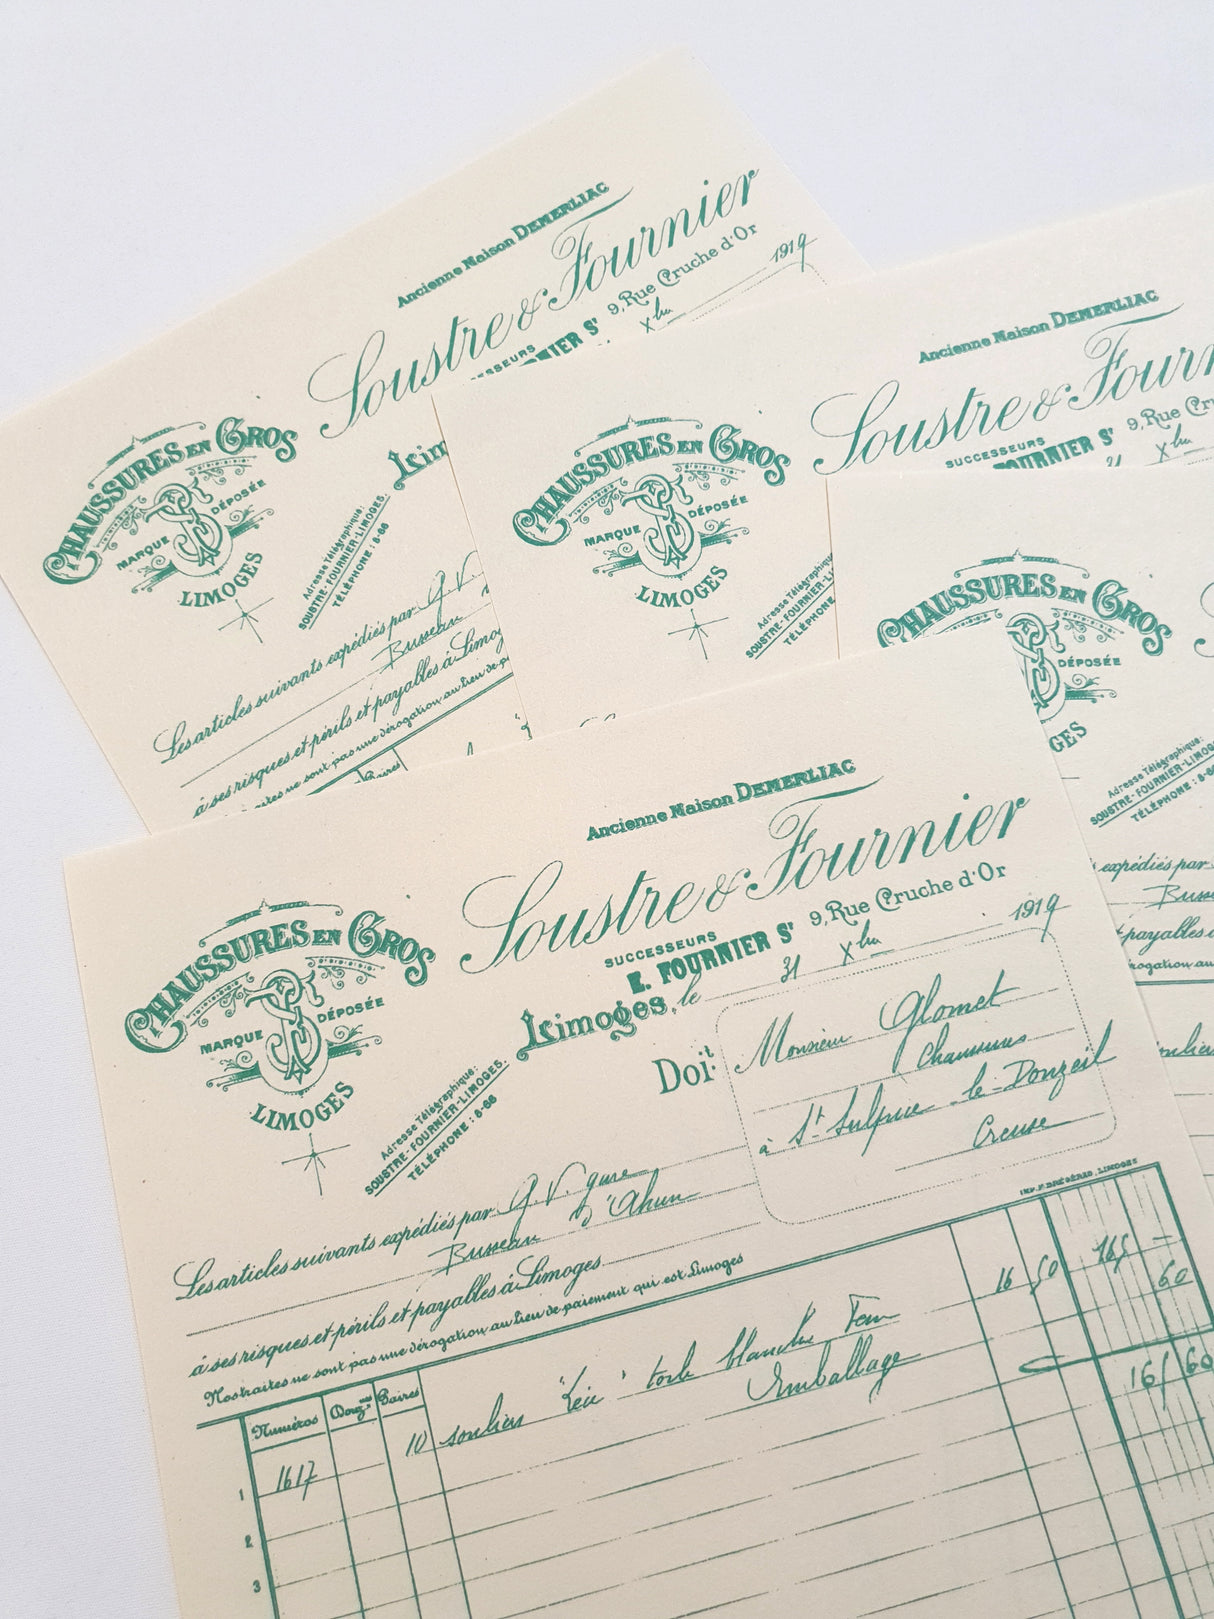 Ancienne Maison DEMERLIAC
Soustre & Fournier
SUCCESSEURS
9, Rue Cruche d'Or
1919
Xbre
CHAUSSURES EN GROS
MARQUE DÉPOSÉE
LIMOGES
Adresse Télégraphique:
SOUSTRE-FOURNIER-LIMOGES.
TÉLÉPHONE: 8-66
Les articles suivants expédiés par G. V.
Busseau
à ses risques et périls et payables à Limog
ne sont pas une dérogation au lieu de p
Ancienne Maison DEMERLIAC
Soustre & Fourn
SUCCESSEURS
FOURNIER Sr
9, Rue Cr
Xbre
CHAUSSURES EN GROS
MARQUE DÉPOSÉE
LIMOGES
Adresse Télégraphique
SOUSTRE-FOURNIER-LI
TÉLÉPHONE
CHAUSSURES EN GROS
DÉPOSÉE
GES
Adresse Télégraphique:
SOUSTRE-FOURNIER-LIMOG
TÉLÉPHONE: 8-6
expédiés par
payables à
Ancienne Maison DEMERLIAC
Soustre & Fournier
SUCCESSEURS
E. FOURNIER Sr
9, Rue Cruche d'Or
Limoges, le 31 Xbre 1919
CHAUSSURES EN GROS
MARQUE DÉPOSÉE
LIMOGES
Adresse Télégraphique:
SOUSTRE-FOURNIER-LIMOGES.
TÉLÉPHONE: 8-66
Doit Monsieur Glomet
Chaussures
à St Sulpice-le-Donzeil
Creuse
Les articles suivants expédiés par G. V. gare
Busseau d'Ahun
à ses risques et périls et payables à Limoges
Nos traites ne sont pas une dérogation au lieu de paiement qui est Limoges
LIMOGES
Numéros Douznes Paires
1 1617 10 souliers toile blanche Fem 16 50 165 —
Emballage 60
165 60
2
3